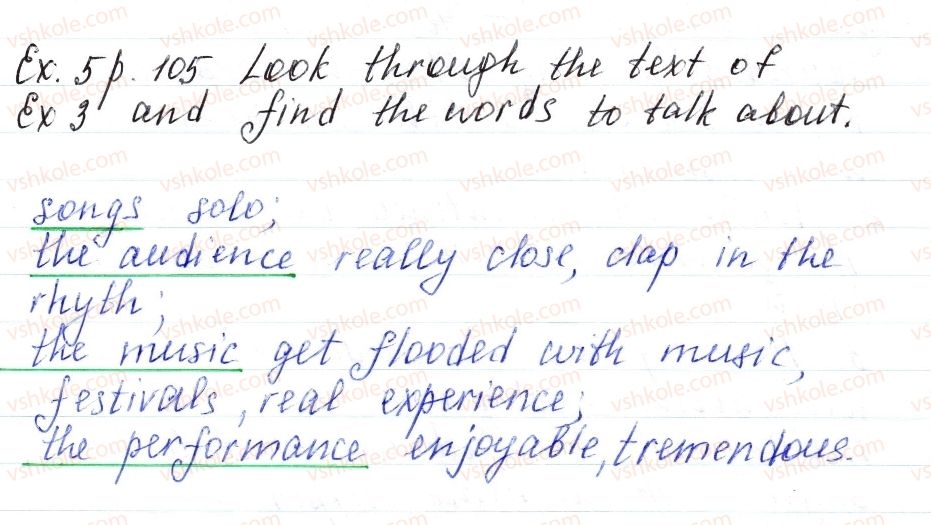 Ex. 5 p. 105 Look through the text of
Ex 3 and find the words to talk about.
songs solo;
the audience really close, clap in the
rhyth;
the music get flooded with music,
festivals, real experience;
the performance enjoyable, tremendous.